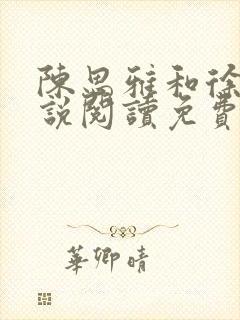 陳思雅和徐
說閱讀免費
華卿晴